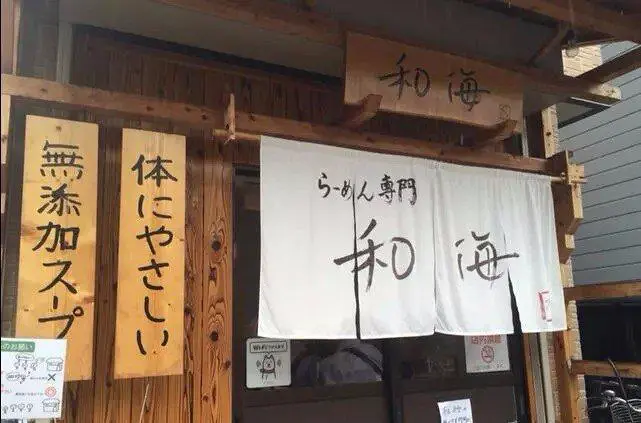 和海
無添加スープ
体にやさしい
らーめん専門
和海
店内禁煙
のお願い